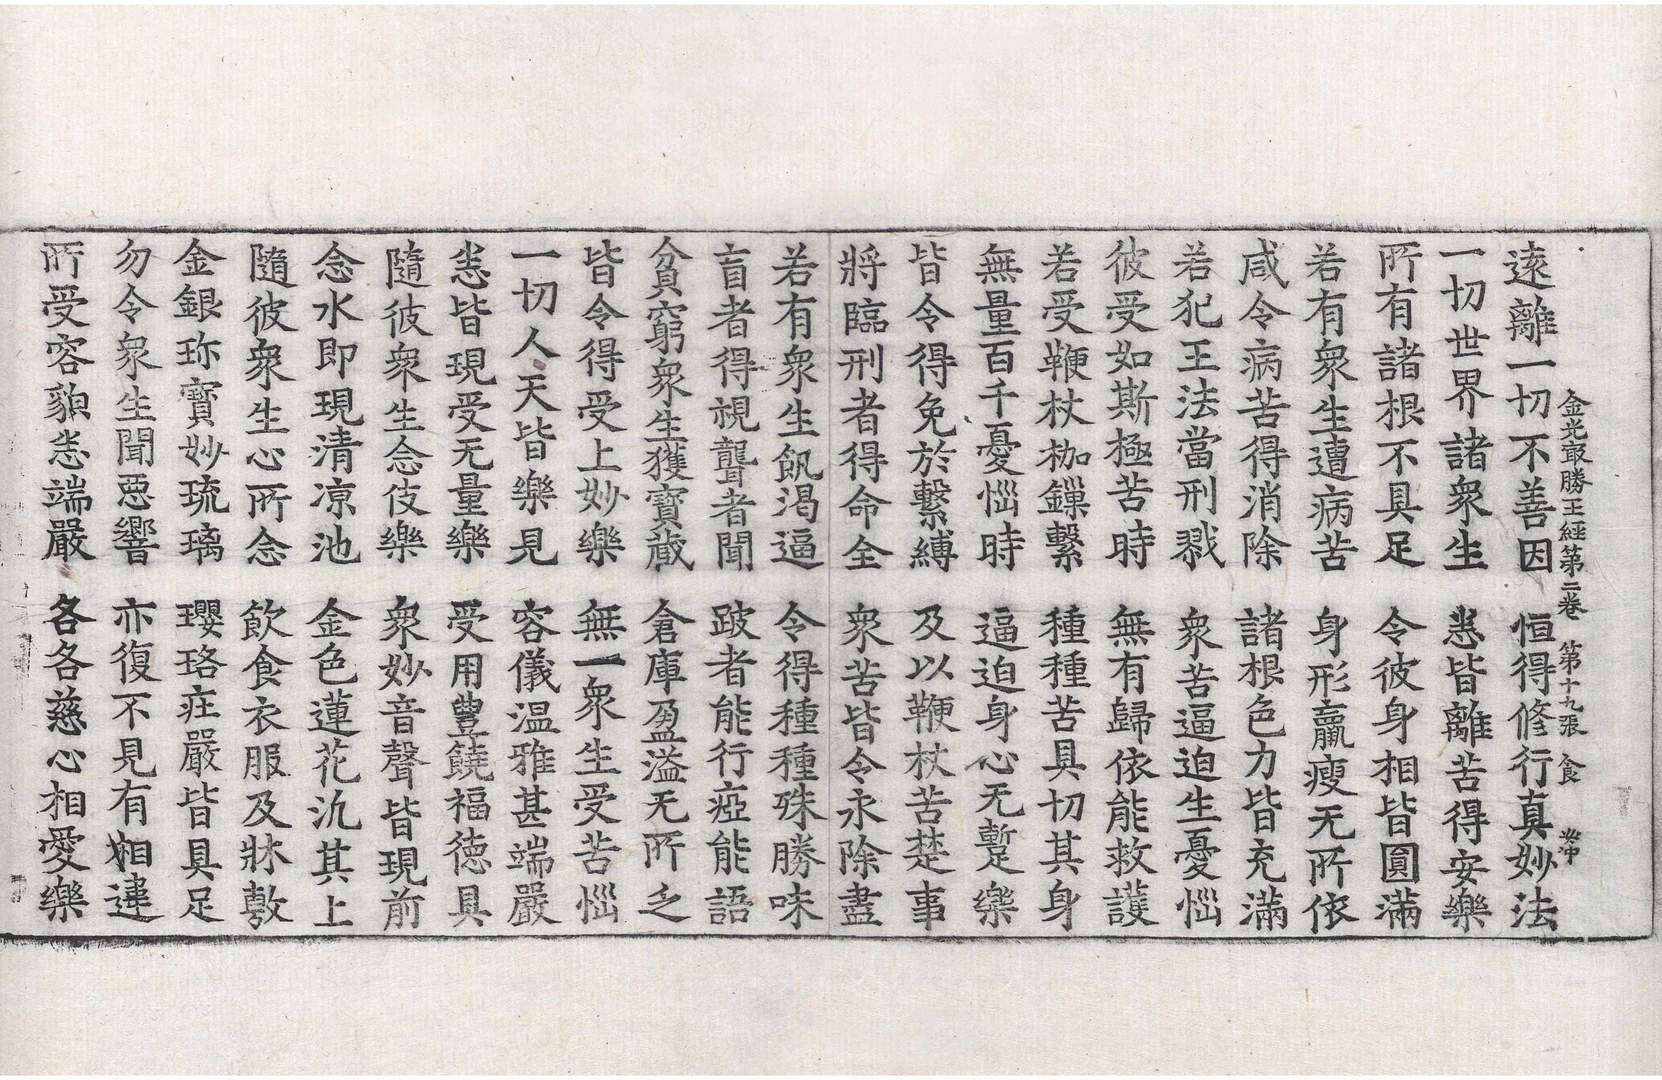 金光㝡勝王經第二卷　第十九張　食
遠離一切不善因　恒得修行真妙法
一切世界諸衆生　悉皆離苦得安樂
所有諸根不具足　令彼身相皆圓滿
若有衆生遭病苦　身形羸瘦无所依
咸令病苦得消除　諸根色力皆充滿
若犯王法當刑戮　衆苦逼迫生憂惱
彼受如斯極苦時　無有歸依能救護
若受鞭杖枷鏁繫　種種苦具切其身
無量百千憂惱時　逼迫身心无蹔樂
皆令得免於繫縛　及以鞭杖苦楚事
將臨刑者得命全　衆苦皆令永除盡
若有衆生飢渴逼　令得種種殊勝味
盲者得視聾者聞　跛者能行瘂能語
貧窮衆生獲寶藏　倉庫盈溢无所乏
皆令得受上妙樂　無一衆生受苦惱
一切人天皆樂見　容儀温雅甚端嚴
悉皆現受无量樂　受用豐饒福德具
隨彼衆生念伎樂　衆妙音聲皆現前
念水即現清涼池　金色蓮花泛其上
隨彼衆生心所念　飲食衣服及牀敷
金銀珎寶妙琉璃　瓔珞莊嚴皆具足
勿令衆生聞惡響　亦復不見有相違
所受容貌悉端嚴　各各慈心相愛樂